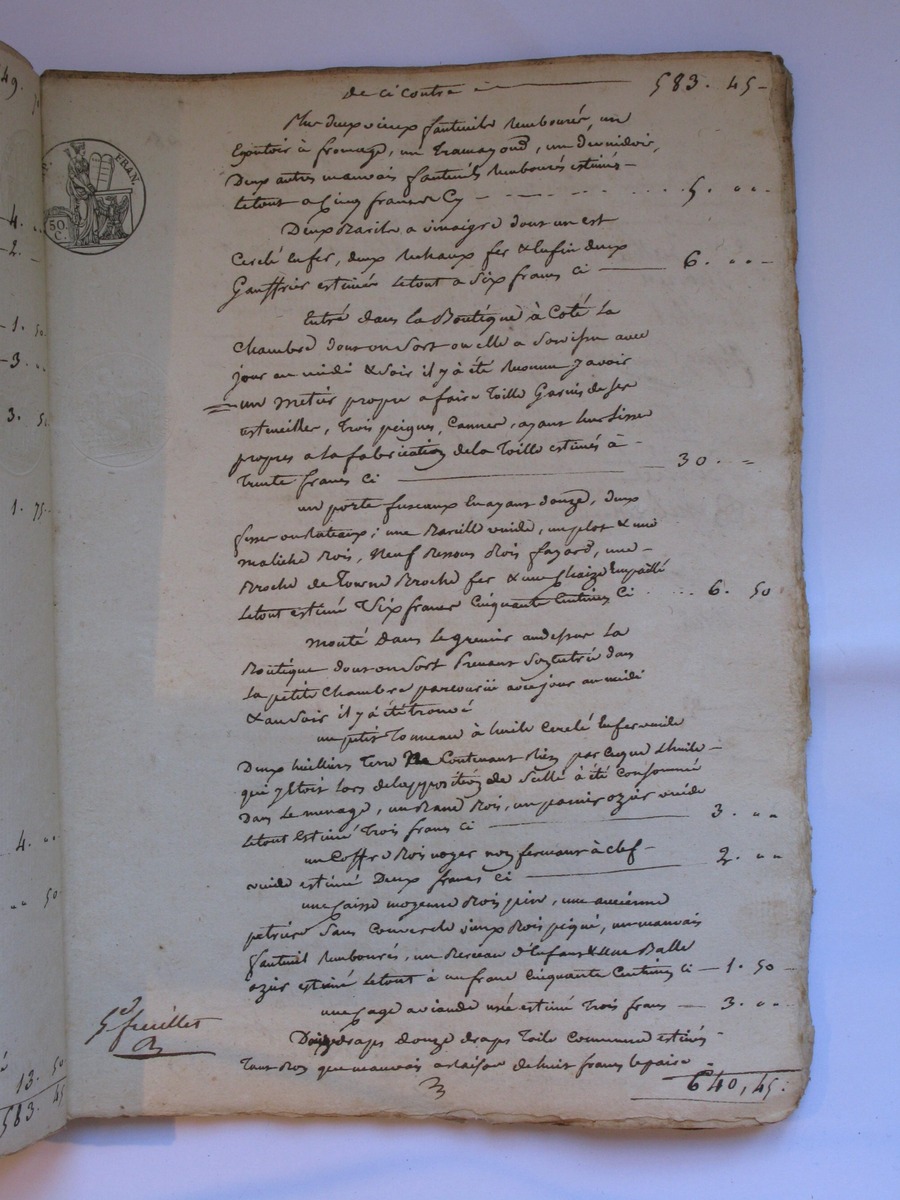 de ci contre 583. 45
Plus deux vieux fauteuils rembourés, un
Egoutoir à fromage, un tramayond, un devuidoir,
Deux autres mauvais fauteuils rembourés estimés
le tout a cinq francs Cy 5. "
Deux Barils a vinaigre dont un est
Cerclé en fer, deux rechaux fer & enfin deux
Gauffrier estimés le tout a six francs ci 6. "
Entré dans la Boutique à Coté la
Chambre dont on sort ou elle a son issue avec
jour au midi & soir il y a été reconnu y avoir
un metier propre a faire toille Garnis de ses
trois peignes, ayant leur lisse
propres a la fabrication de la toille estimés à
trente francs ci 30. "
un porte fuseaux en ayant douze, deux
ou Rateaux; une Bareille vuide, un plot & une
Bois, neuf Bois fayard, une
Broche de tourne Broche fer & une chaize empaillé
le tout estimé six francs cinquante centimes ci 6. 50
monté dans le grenier au dessus la
Boutique dont on sort prenant son entrée dans
la petite chambre parcourüe avec jour au midi
& au soir il y a été trouvé
un petit tonneau à huile cerclé en fer vuide
Deux huilliers terre ne contenant rien parceque l'huile
qui y etoit lors de l'apposition de scellé à été consommé
Dans le menage, un Banc Bois, un panier ozier vuide
le tout estimé trois francs ci 3. "
un Coffre Bois noyer non fermant à clef
vuide estimé Deux francs ci 2. "
une caisse moyenne Bois pin, une ancienne
petrière sans couvercle vieux Bois piqué, un mauvais
fauteuil rembourés, un Berceau d'enfant & une Balle
ozier estimé le tout à un franc cinquante centimes ci 1. 50
une cage a viande usée estimé trois francs 3. "
draps douze draps toile commune estimés
tant Bon que mauvais a raison de huit francs la paire
640, 45.
5e feuillet
F. FRAN.
50
C.
49.
4.
2.
1. 50
3.
3. 5
1. 75
4. "
" 50
13. 50
583. 45